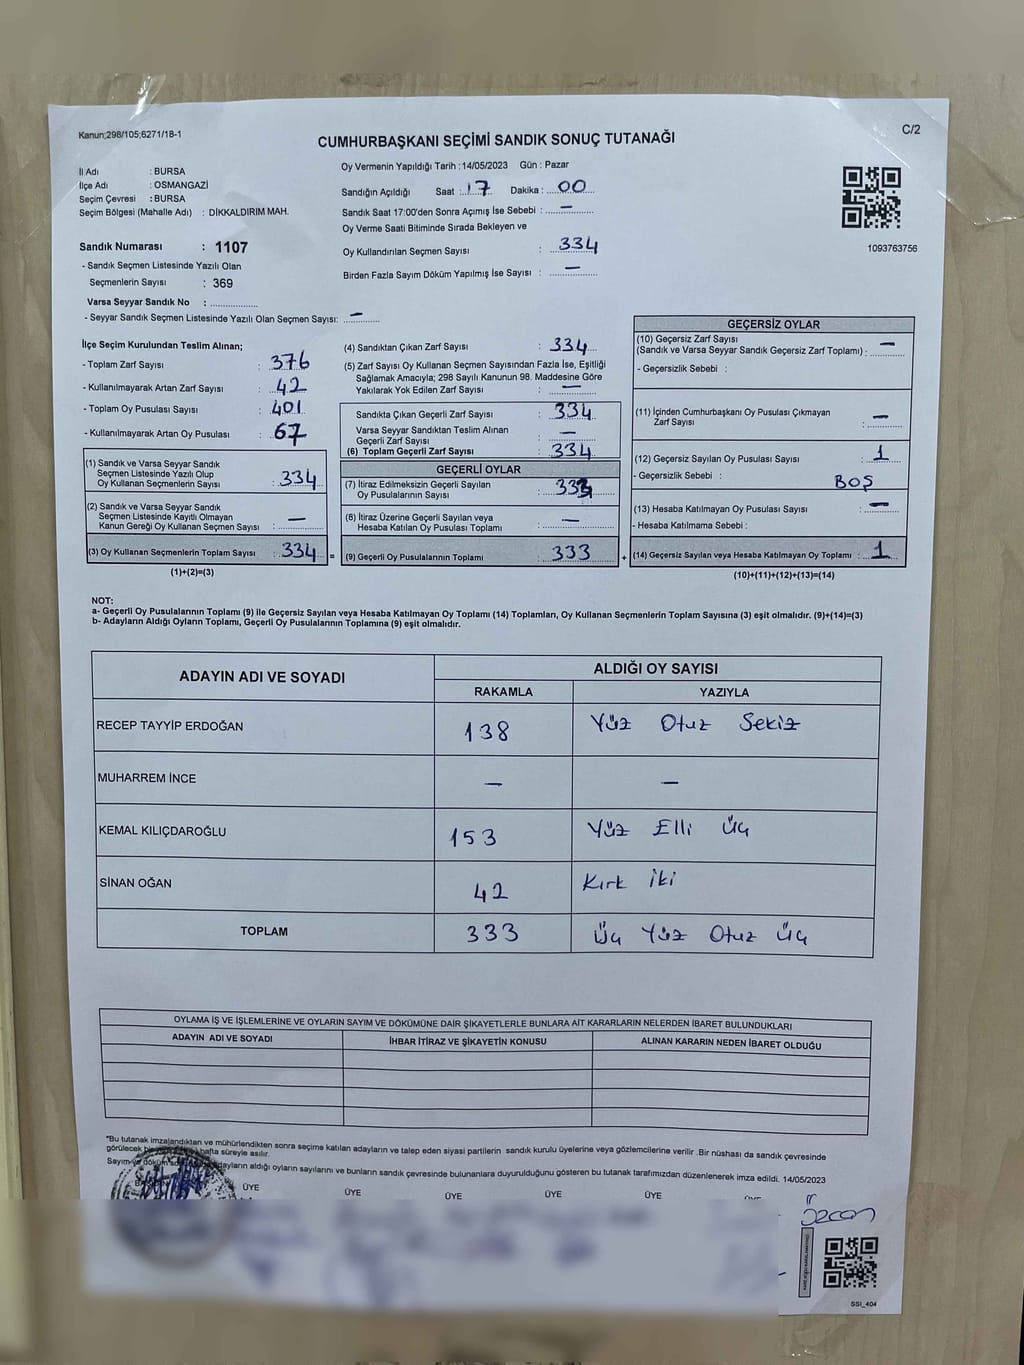 Kanun;298/105;6271/18-1
C/2
CUMHURBAŞKANI SEÇİMİ SANDIK SONUÇ TUTANAĞI
İl Adı : BURSA
İlçe Adı : OSMANGAZİ
Seçim Çevresi : BURSA
Seçim Bölgesi (Mahalle Adı) : DİKKALDIRIM MAH.
Sandık Numarası : 1107
- Sandık Seçmen Listesinde Yazılı Olan
Seçmenlerin Sayısı : 369
Varsa Seyyar Sandık No : ..............
- Seyyar Sandık Seçmen Listesinde Yazılı Olan Seçmen Sayısı: —
Oy Vermenin Yapıldığı Tarih :14/05/2023 Gün : Pazar
Sandığın Açıldığı Saat : 17 Dakika : 00
Sandık Saat 17:00'den Sonra Açımış İse Sebebi : —
Oy Verme Saati Bitiminde Sırada Bekleyen ve
Oy Kullandırılan Seçmen Sayısı : 334
Birden Fazla Sayım Döküm Yapılmış İse Sayısı : —
1093763756
İlçe Seçim Kurulundan Teslim Alınan;
- Toplam Zarf Sayısı : 376
- Kullanılmayarak Artan Zarf Sayısı : 42
- Toplam Oy Pusulası Sayısı : 401
- Kullanılmayarak Artan Oy Pusulası : 67
(1) Sandık ve Varsa Seyyar Sandık
Seçmen Listesinde Yazılı Olup
Oy Kullanan Seçmenlerin Sayısı : 334
(2) Sandık ve Varsa Seyyar Sandık
Seçmen Listesinde Kayıtlı Olmayan
Kanun Gereği Oy Kullanan Seçmen Sayısı : —
(3) Oy Kullanan Seçmenlerin Toplam Sayısı : 334 =
(1)+(2)=(3)
(4) Sandıktan Çıkan Zarf Sayısı : 334
(5) Zarf Sayısı Oy Kullanan Seçmen Sayısından Fazla İse, Eşitliği
Sağlamak Amacıyla; 298 Sayılı Kanunun 98. Maddesine Göre
Yakılarak Yok Edilen Zarf Sayısı : —
Sandıkta Çıkan Geçerli Zarf Sayısı : 334
Varsa Seyyar Sandıktan Teslim Alınan
Geçerli Zarf Sayısı : —
(6) Toplam Geçerli Zarf Sayısı : 334
GEÇERLİ OYLAR
(7) İtiraz Edilmeksizin Geçerli Sayılan
Oy Pusulalarının Sayısı : 333
(8) İtiraz Üzerine Geçerli Sayılan veya
Hesaba Katılan Oy Pusulası Toplamı : —
(9) Geçerli Oy Pusulalarının Toplamı : 333 +
GEÇERSİZ OYLAR
(10) Geçersiz Zarf Sayısı
(Sandık ve Varsa Seyyar Sandık Geçersiz Zarf Toplamı) : —
- Geçersizlik Sebebi :
(11) İçinden Cumhurbaşkanı Oy Pusulası Çıkmayan
Zarf Sayısı : —
(12) Geçersiz Sayılan Oy Pusulası Sayısı : 1
- Geçersizlik Sebebi : BOŞ
(13) Hesaba Katılmayan Oy Pusulası Sayısı : —
- Hesaba Katılmama Sebebi :
(14) Geçersiz Sayılan veya Hesaba Katılmayan Oy Toplamı : 1
(10)+(11)+(12)+(13)=(14)
NOT:
a- Geçerli Oy Pusulalarının Toplamı (9) ile Geçersiz Sayılan veya Hesaba Katılmayan Oy Toplamı (14) Toplamları, Oy Kullanan Seçmenlerin Toplam Sayısına (3) eşit olmalıdır. (9)+(14)=(3)
b- Adayların Aldığı Oyların Toplamı, Geçerli Oy Pusulalarının Toplamına (9) eşit olmalıdır.
ADAYIN ADI VE SOYADI ALDIĞI OY SAYISI
RAKAMLA YAZIYLA
RECEP TAYYİP ERDOĞAN 138 Yüz Otuz Sekiz
MUHARREM İNCE — —
KEMAL KILIÇDAROĞLU 153 Yüz Elli Üç
SİNAN OĞAN 42 Kırk İki
TOPLAM 333 Üç Yüz Otuz Üç
OYLAMA İŞ VE İŞLEMLERİNE VE OYLARIN SAYIM VE DÖKÜMÜNE DAİR ŞİKAYETLERLE BUNLARA AİT KARARLARIN NELERDEN İBARET BULUNDUKLARI
ADAYIN ADI VE SOYADI İHBAR İTİRAZ VE ŞİKAYETİN KONUSU ALINAN KARARIN NEDEN İBARET OLDUĞU
*Bu tutanak imzalandıktan ve mühürlendikten sonra seçime katılan adayların ve talep eden siyasi partilerin sandık kurulu üyelerine veya gözlemcilerine verilir .Bir nüshası da sandık çevresinde
görülecek bir hafta süreyle asılır.
Sayım ve döküm adayların aldığı oyların sayılarını ve bunların sandık çevresinde bulunanlara duyurulduğunu gösteren bu tutanak tarafımızdan düzenlenerek imza edildi. 14/05/2023
ÜYE ÜYE ÜYE ÜYE ÜYE
özcan
SSI_404